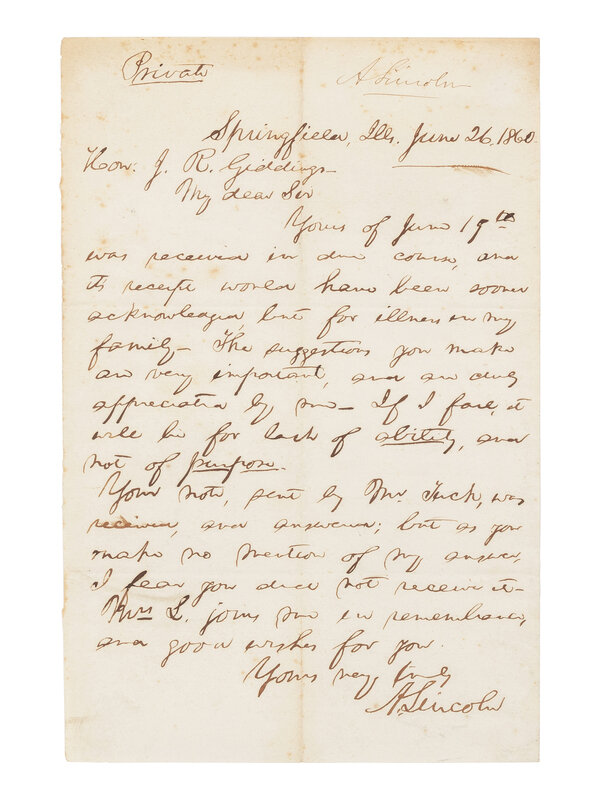 Private
A Lincoln
Springfield, Ills. June 26. 1860
Hon: J. R. Giddings
My dear Sir
Yours of June 19th
was received in due course, and
its receipt would have been sooner
acknowledged, but for illness in my
family— The suggestions you make
are very important, and are duly
appreciated by me— If I fail, it
will be for lack of ability, and
not of purpose.
Your note, sent by Mr. Tuck, was
received, and answered; but as you
make no mention of my answer,
I fear you did not receive it—
Mrs L. joins me in remembrances,
and good wishes for you.
Yours very truly
A. Lincoln